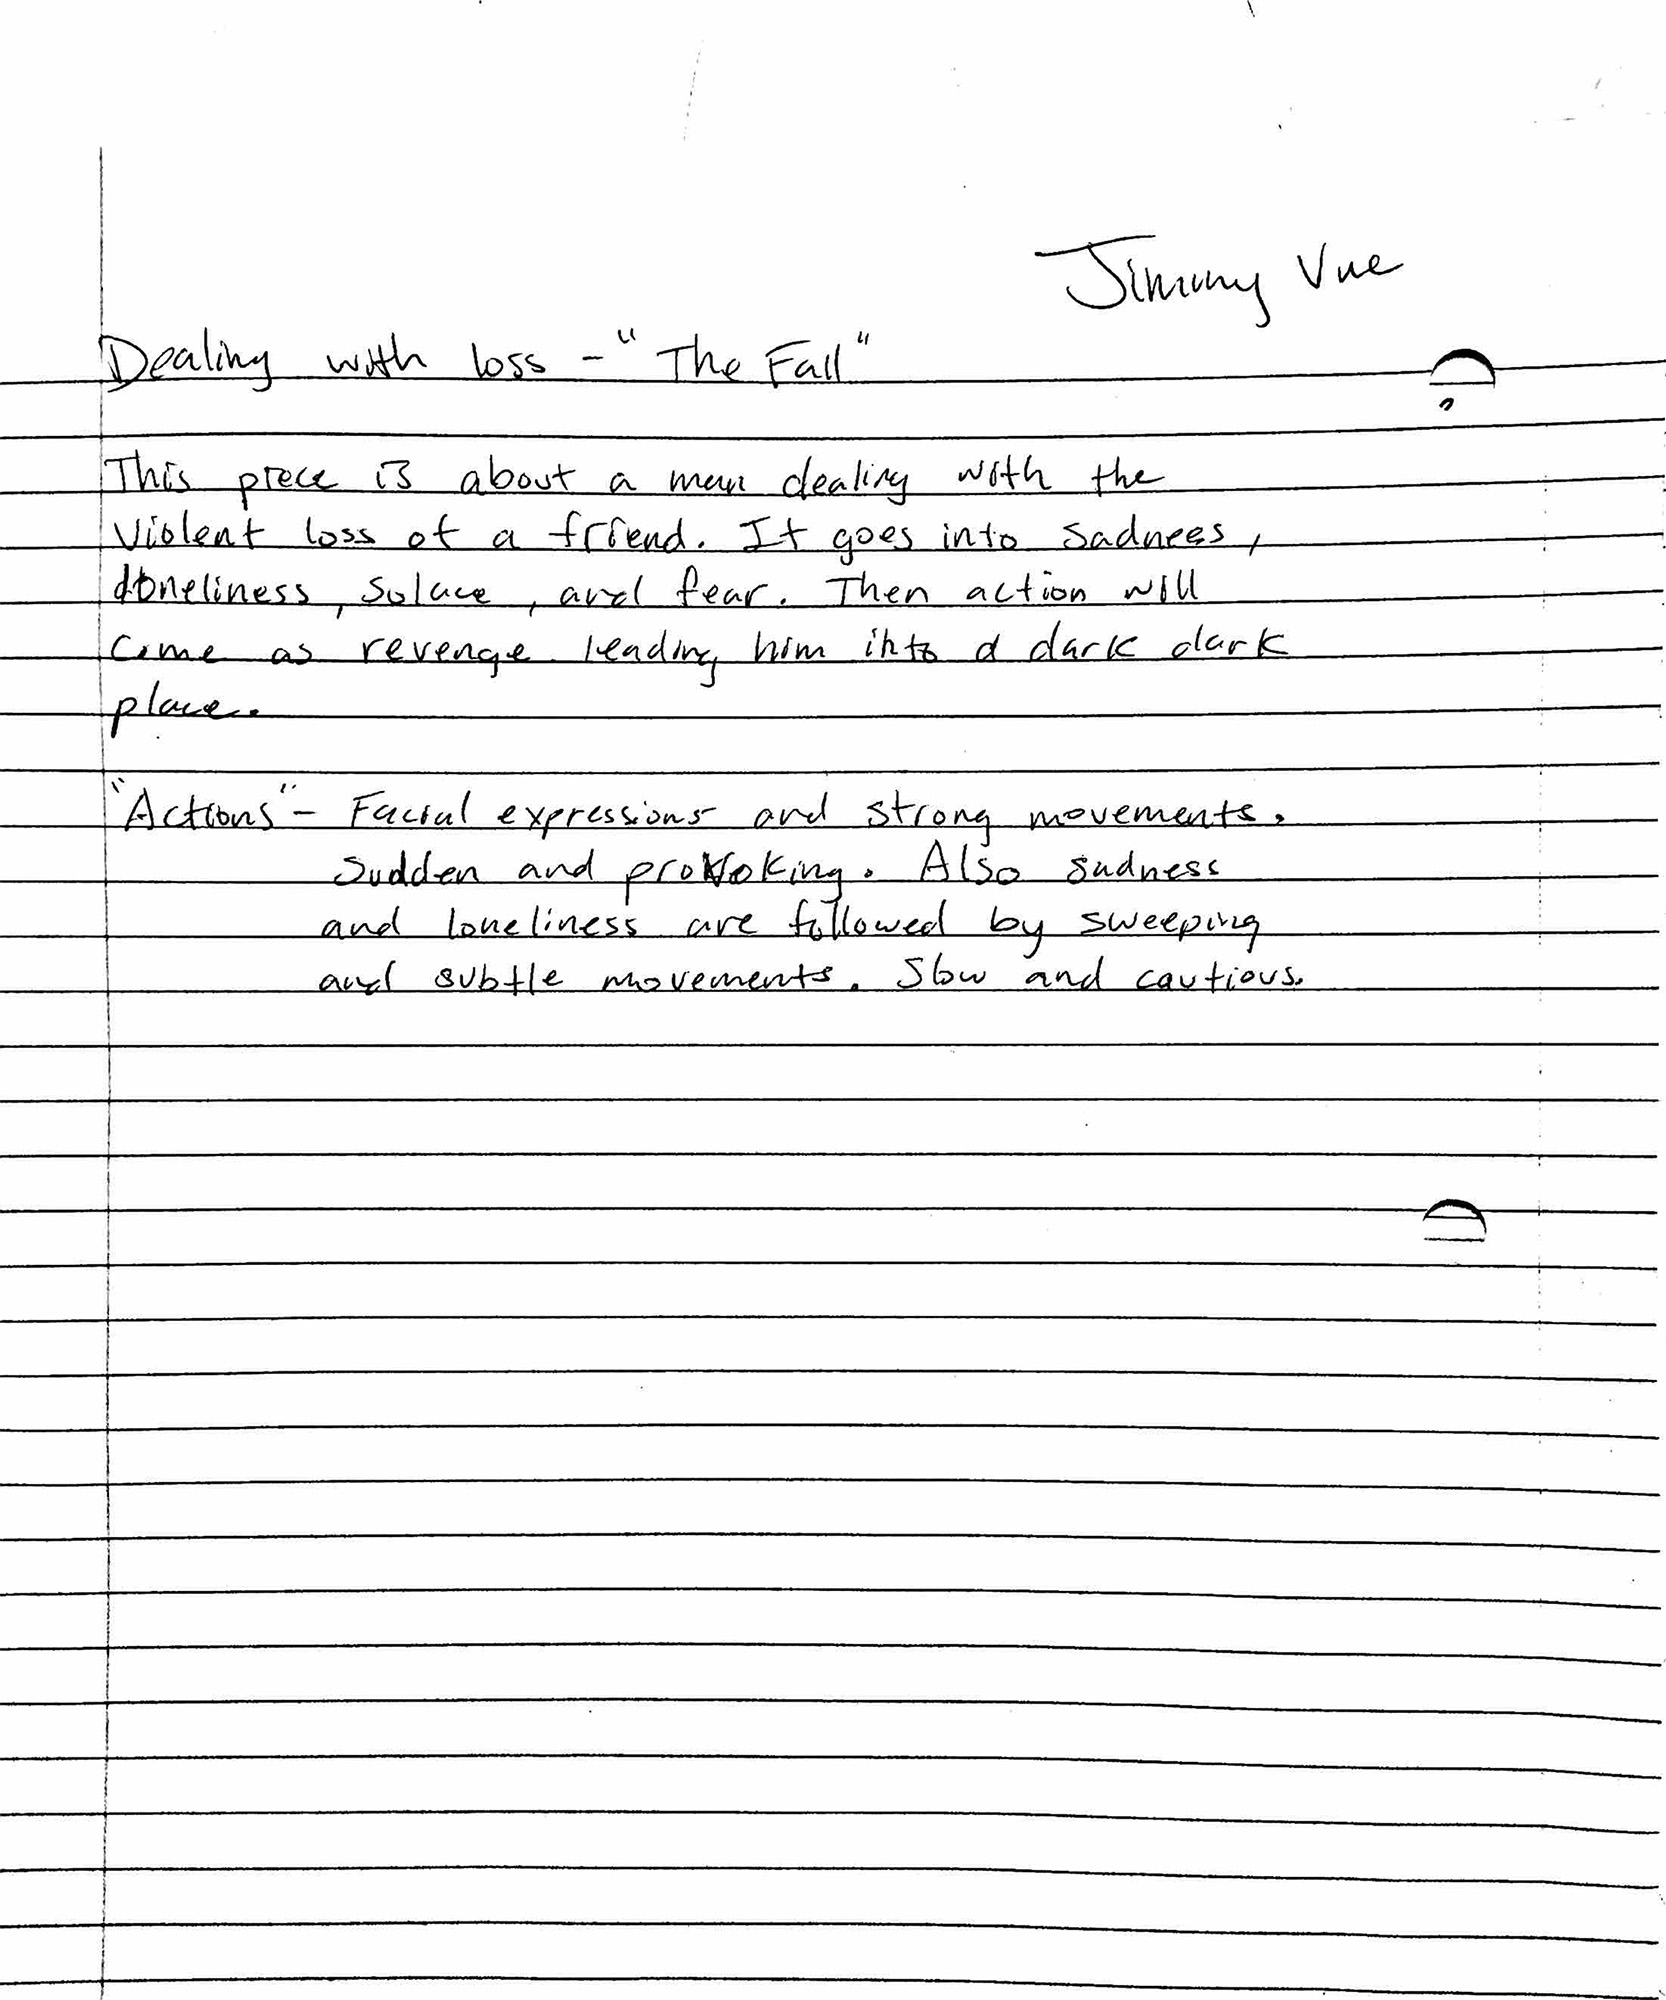 Jimmy Vue
Dealing with loss - "The Fall"
This piece is about a man dealing with the
violent loss of a friend. It goes into sadness,
loneliness, solace, and fear. Then action will
come as revenge leading him into a dark dark
place.
"Actions" - Facial expressions and strong movements.
Sudden and provoking. Also sadness
and loneliness are followed by sweeping
and subtle movements. Slow and cautious.